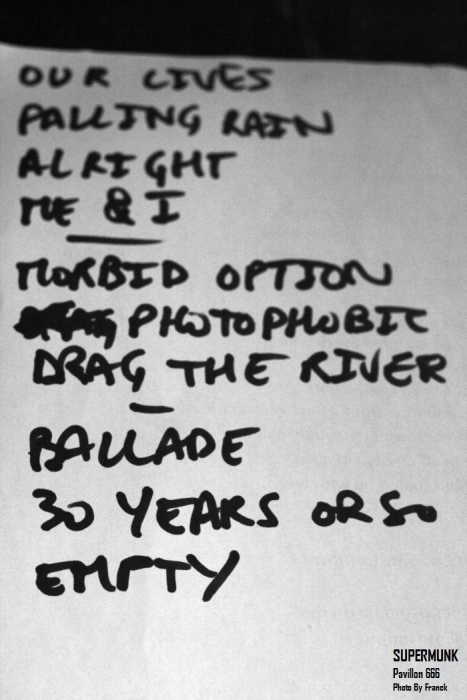 OUR LIVES
FALLING RAIN
ALRIGHT
ME & I
MORBID OPTION
PHOTOPHOBIC
DRAG THE RIVER
BALLADE
30 YEARS OR SO
EMPTY
SUPERMUNK
Pavillon 666
Photo By Franck